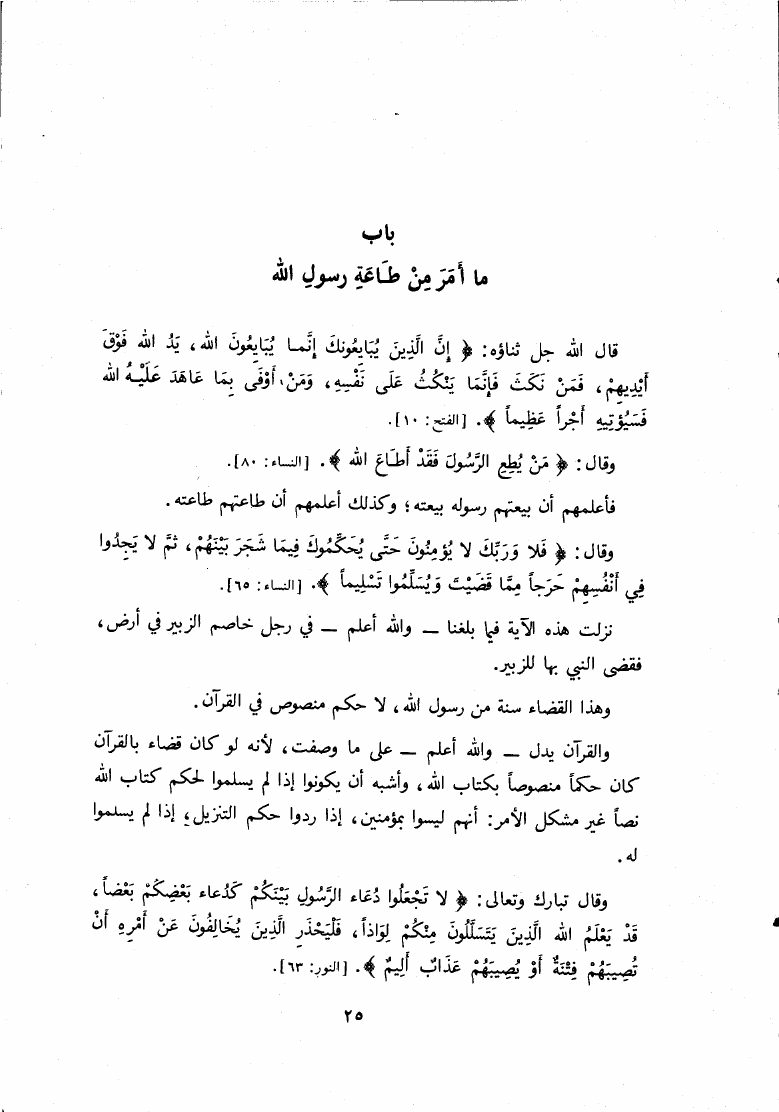 باب
ما أَمَرَ مِنْ طَاعَةِ رسولِ الله
قال الله جل ثناؤه: ﴿ إِنَّ الَّذِينَ يُبَايِعُونَكَ إِنَّما يُبَايِعُونَ الله، يَدُ الله فَوْقَ
أَيْدِيهِمْ، فَمَنْ نَكَثَ فَإِنَّمَا يَنْكُثُ عَلَى نَفْسِهِ، وَمَنْ أَوْفَى بِمَا عَاهَدَ عَلَيْهُ الله
فَسَيُؤْتِيهِ أَجْراً عَظِيماً ﴾. [الفتح: ١٠].
وقال: ﴿ مَنْ يُطِعِ الرَّسُولَ فَقَدْ أَطَاعَ الله ﴾. [النساء: ٨٠].
فأعلمهم أن بيعتهم رسوله بيعته؛ وكذلك أعلمهم أن طاعتهم طاعته.
وقال: ﴿ فَلا وَرَبِّكَ لا يُؤْمِنُونَ حَتَّى يُحَكِّمُوكَ فِيمَا شَجَرَ بَيْنَهُمْ، ثمَّ لا يَجِدُوا
فِي أَنْفُسِهِمْ حَرَجاً مِمَّا قَضَيْتَ وَيُسَلِّمُوا تَسْلِيماً ﴾. [النساء: ٦٥].
نزلت هذه الآية فيما بلغنا — والله أعلم — في رجل خاصم الزبير في أرض،
فقضى النبي بها للزبير.
وهذا القضاء سنة من رسول الله، لا حكم منصوص في القرآن.
والقرآن يدل — والله أعلم — على ما وصفت، لأنه لو كان قضاء بالقرآن
كان حكماً منصوصاً بكتاب الله، وأشبه أن يكونوا إذا لم يسلموا لحكم كتاب الله
نصاً غير مشكل الأمر: أنهم ليسوا بمؤمنين، إذا ردوا حكم التنزيل، إذا لم يسلموا
له.
وقال تبارك وتعالى: ﴿ لا تَجْعَلُوا دُعَاء الرَّسُولِ بَيْنَكُمْ كَدُعاء بَعْضِكُمْ بَعْضاً،
قَدْ يَعْلَمُ الله الَّذِينَ يَتَسَلَّلُونَ مِنْكُمْ لِوَاذاً، فَلْيَحْذَرِ الَّذِينَ يُخَالِفُونَ عَنْ أَمْرِهِ أَنْ
تُصِيبَهُمْ فِتْنَةٌ أَوْ يُصِيبَهُمْ عَذَابٌ أَلِيمٌ ﴾. [النور: ٦٣].
٢٥